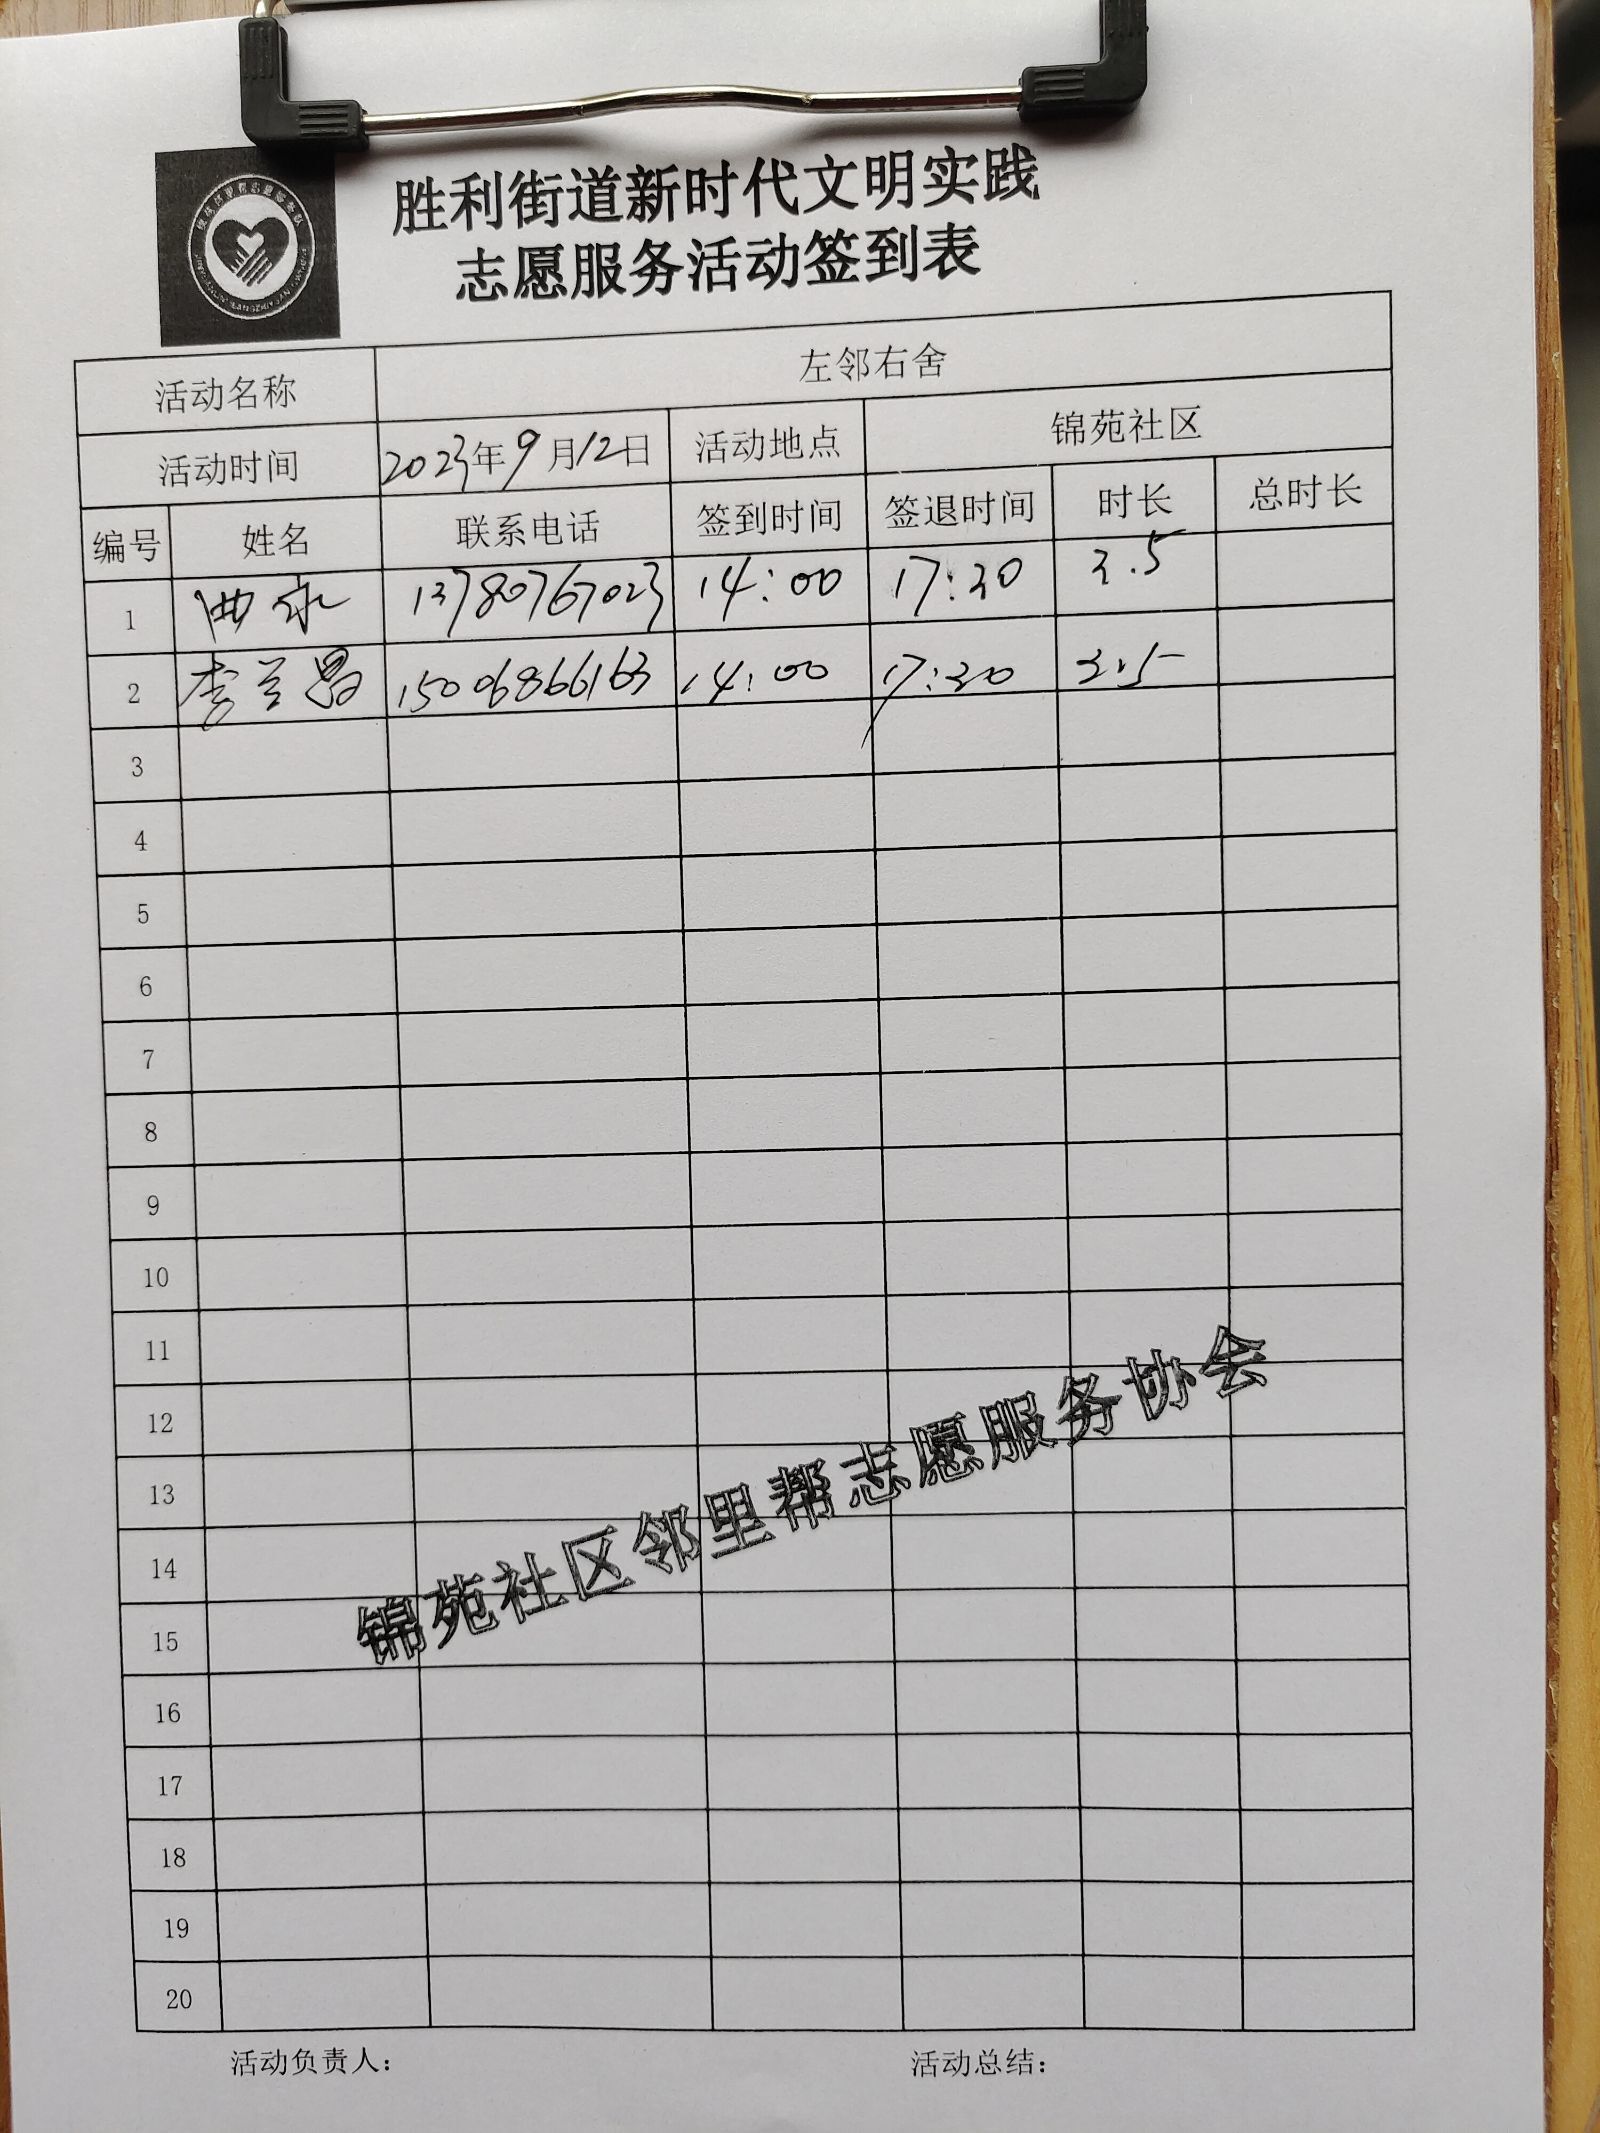 胜利街道新时代文明实践
志愿服务活动签到表
活动名称 左邻右舍
活动时间 2023年9月12日 活动地点 锦苑社区
编号 姓名 联系电话 签到时间 签退时间 时长 总时长
1 曲永 13780767023 14:00 17:30 3.5
2 李兰昌 15006866163 14:00 17:30 3.5
3
4
5
6
7
8
9
10
11
12
13
14
15
16
17
18
19
20
锦苑社区邻里帮志愿服务协会
活动负责人： 活动总结：